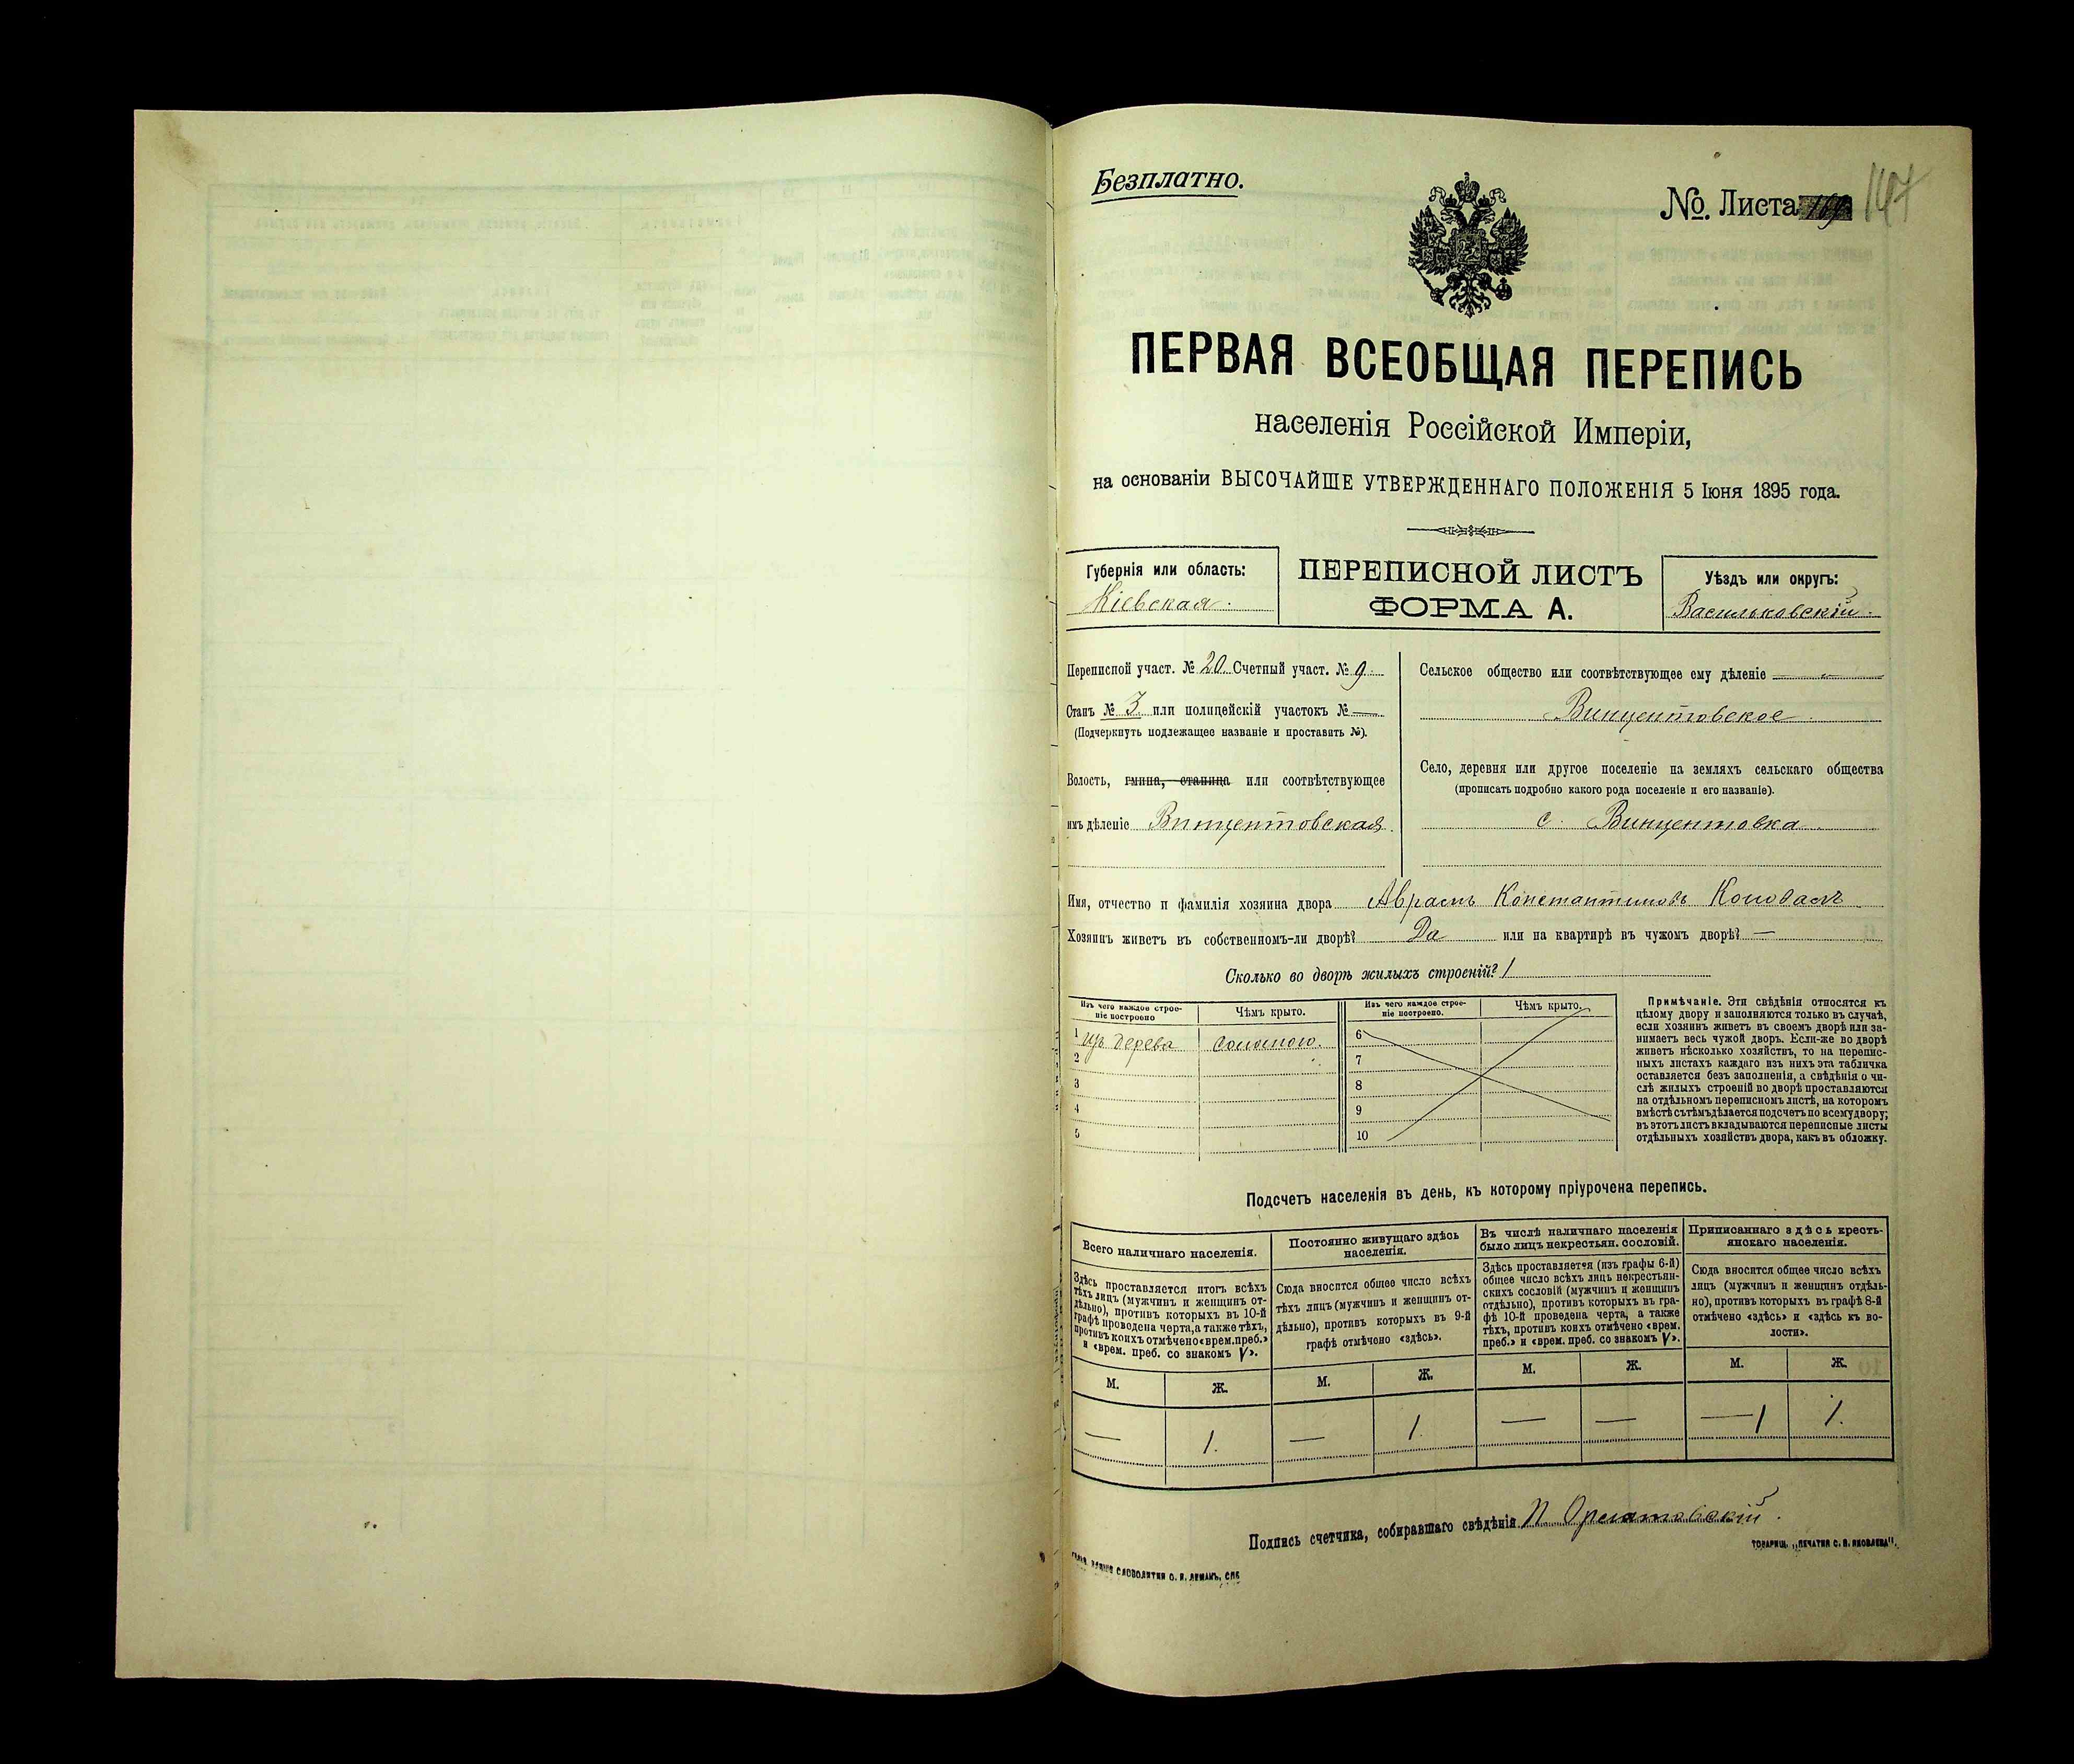 Безплатно.
№. Листа 147
ПЕРВАЯ ВСЕОБЩАЯ ПЕРЕПИСЬ
населенія Россійской Имперіи,
на основаніи ВЫСОЧАЙШЕ УТВЕРЖДЕННАГО ПОЛОЖЕНІЯ 5 Іюня 1895 года.
Губернія или область:
Кіевская.
ПЕРЕПИСНОЙ ЛИСТЪ
ФОРМА А.
Уѣздъ или округъ:
Васильковскій.
Переписной участ. № 20. Счетный участ. № 9.
Станъ № 3 или полицейскій участокъ № —
(Подчеркнуть подлежащее названіе и проставить №).
Волость, гмина, станица или соотвѣтствующее
имъ дѣленіе Винцентовская.
Сельское общество или соотвѣтствующее ему дѣленіе
Винцентовское.
Село, деревня или другое поселеніе на земляхъ сельскаго общества
(прописать подробно какого рода поселеніе и его названіе).
с. Винцентовка
Имя, отчество и фамилія хозяина двора Аврамъ Константиновъ
Хозяинъ живетъ въ собственномъ-ли дворѣ? Да или на квартирѣ въ чужомъ дворѣ? —
Сколько во дворѣ жилыхъ строеній? 1
Изъ чего каждое строе-
ніе построено
Чѣмъ крыто.
1 изъ дерева соломою.
2
3
4
5
Изъ чего каждое строе-
ніе построено.
Чѣмъ крыто.
6
7
8
9
10
Примѣчаніе. Эти свѣдѣнія относятся къ
цѣлому двору и заполняются только въ случаѣ,
если хозяинъ живетъ въ своемъ дворѣ или за-
нимаетъ весь чужой дворъ. Если-же во дворѣ
живетъ нѣсколько хозяйствъ, то на перепис-
ныхъ листахъ каждаго изъ нихъ эта табличка
оставляется безъ заполненія, а свѣдѣнія о чи-
слѣ жилыхъ строеній во дворѣ проставляются
на отдѣльномъ переписномъ листѣ, на которомъ
вмѣстѣ съ тѣмъ дѣлается подсчетъ по всему двору;
въ этотъ листъ вкладываются переписные листы
отдѣльныхъ хозяйствъ двора, какъ въ обложку.
Подсчетъ населенія въ день, къ которому пріурочена перепись.
Всего наличнаго населенія.
Здѣсь проставляется итогъ всѣхъ
тѣхъ лицъ (мужчинъ и женщинъ от-
дѣльно), противъ которыхъ въ 10-й
графѣ проведена черта, а также тѣхъ,
противъ коихъ отмѣчено «врем. преб.»
и «врем. преб. со знакомъ V».
М. Ж.
— 1.
Постоянно живущаго здѣсь
населенія.
Сюда вносится общее число всѣхъ
тѣхъ лицъ (мужчинъ и женщинъ от-
дѣльно), противъ которыхъ въ 9-й
графѣ отмѣчено «здѣсь».
М. Ж.
— 1
Въ числѣ наличнаго населенія
было лицъ некрестьян. сословій.
Здѣсь проставляется (изъ графы 6-й)
общее число всѣхъ лицъ некрестьян-
скихъ сословій (мужчинъ и женщинъ
отдѣльно), противъ которыхъ въ гра-
фѣ 10-й проведена черта, а также
тѣхъ, противъ коихъ отмѣчено «врем.
преб.» и «врем. преб. со знакомъ V».
М. Ж.
— —
Приписаннаго здѣсь кресть-
янскаго населенія.
Сюда вносится общее число всѣхъ
лицъ (мужчинъ и женщинъ отдѣль-
но), противъ которыхъ въ графѣ 8-й
отмѣчено «здѣсь» и «здѣсь къ во-
лости».
М. Ж.
— 1 1.
Подпись счетчика, собиравшаго свѣдѣнія П.
СЛОВОЛИТНИ О. И. ЛЕМАНЪ, СПБ
ТОВАРИЩ. „ПЕЧАТНЯ С. П. ЯКОВЛЕВА".